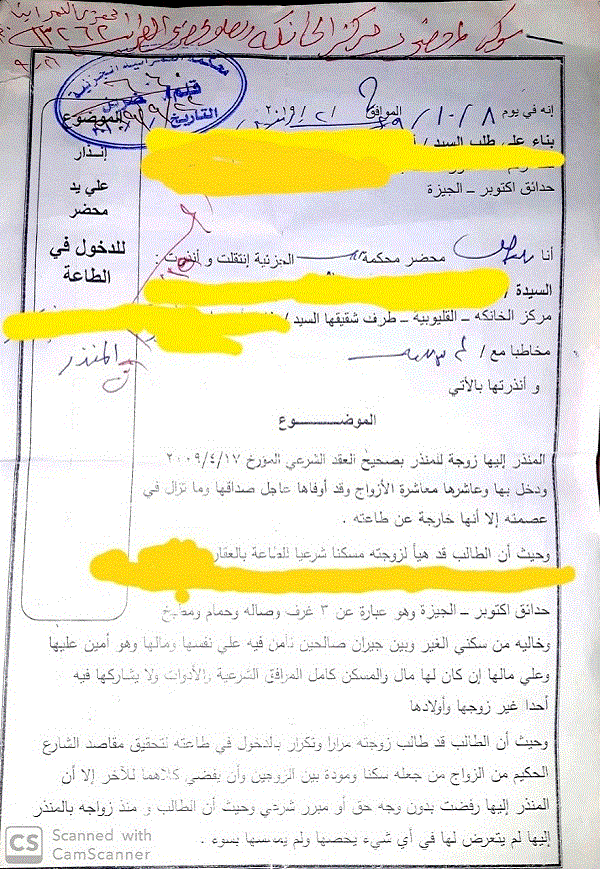 إنه في يوم ٢٠١٩/١٠/٨ الموافق
بناء علي طلب السيد /
حدائق اكتوبر – الجيزة
الموضوع
إنذار
علي يد
محضر
للدخول في
الطاعة
التاريخ
أنا محضر محكمة الجزئية إنتقلت و أنذرت :
السيدة /
مركز الخانكه – القليوبية – طرف شقيقها السيد /
مخاطبا مع /
المنذر
و أنذرتها بالأتي
الموضــــــوع
المنذر إليها زوجة للمنذر بصحيح العقد الشرعي المؤرخ ٢٠٠٩/٤/١٧
ودخل بها وعاشرها معاشرة الأزواج وقد أوفاها عاجل صداقها وما تزال في
عصمته إلا أنها خارجة عن طاعته .
وحيث أن الطالب قد هيأ لزوجته مسكنا شرعيا للطاعة بالعقار
حدائق اكتوبر – الجيزة وهو عبارة عن ٣ غرف وصاله وحمام ومطبخ
وخاليه من سكني الغير وبين جيران صالحين تأمن فيه علي نفسها ومالها وهو أمين عليها
وعلي مالها إن كان لها مال والمسكن كامل المرافق الشرعية والأدوات ولا يشاركها فيه
أحدا غير زوجها وأولادها
وحيث أن الطالب قد طالب زوجته مرارا وتكرار بالدخول في طاعته لتحقيق مقاصد الشارع
الحكيم من الزواج من جعله سكنا ومودة بين الزوجين وأن يفضي كلاهما للآخر إلا أن
المنذر إليها رفضت بدون وجه حق أو مبرر شرعي وحيث أن الطالب و منذ زواجه بالمنذر
إليها لم يتعرض لها في أي شيء يخصها ولم يمسسها بسوء .
CS Scanned with
CamScanner